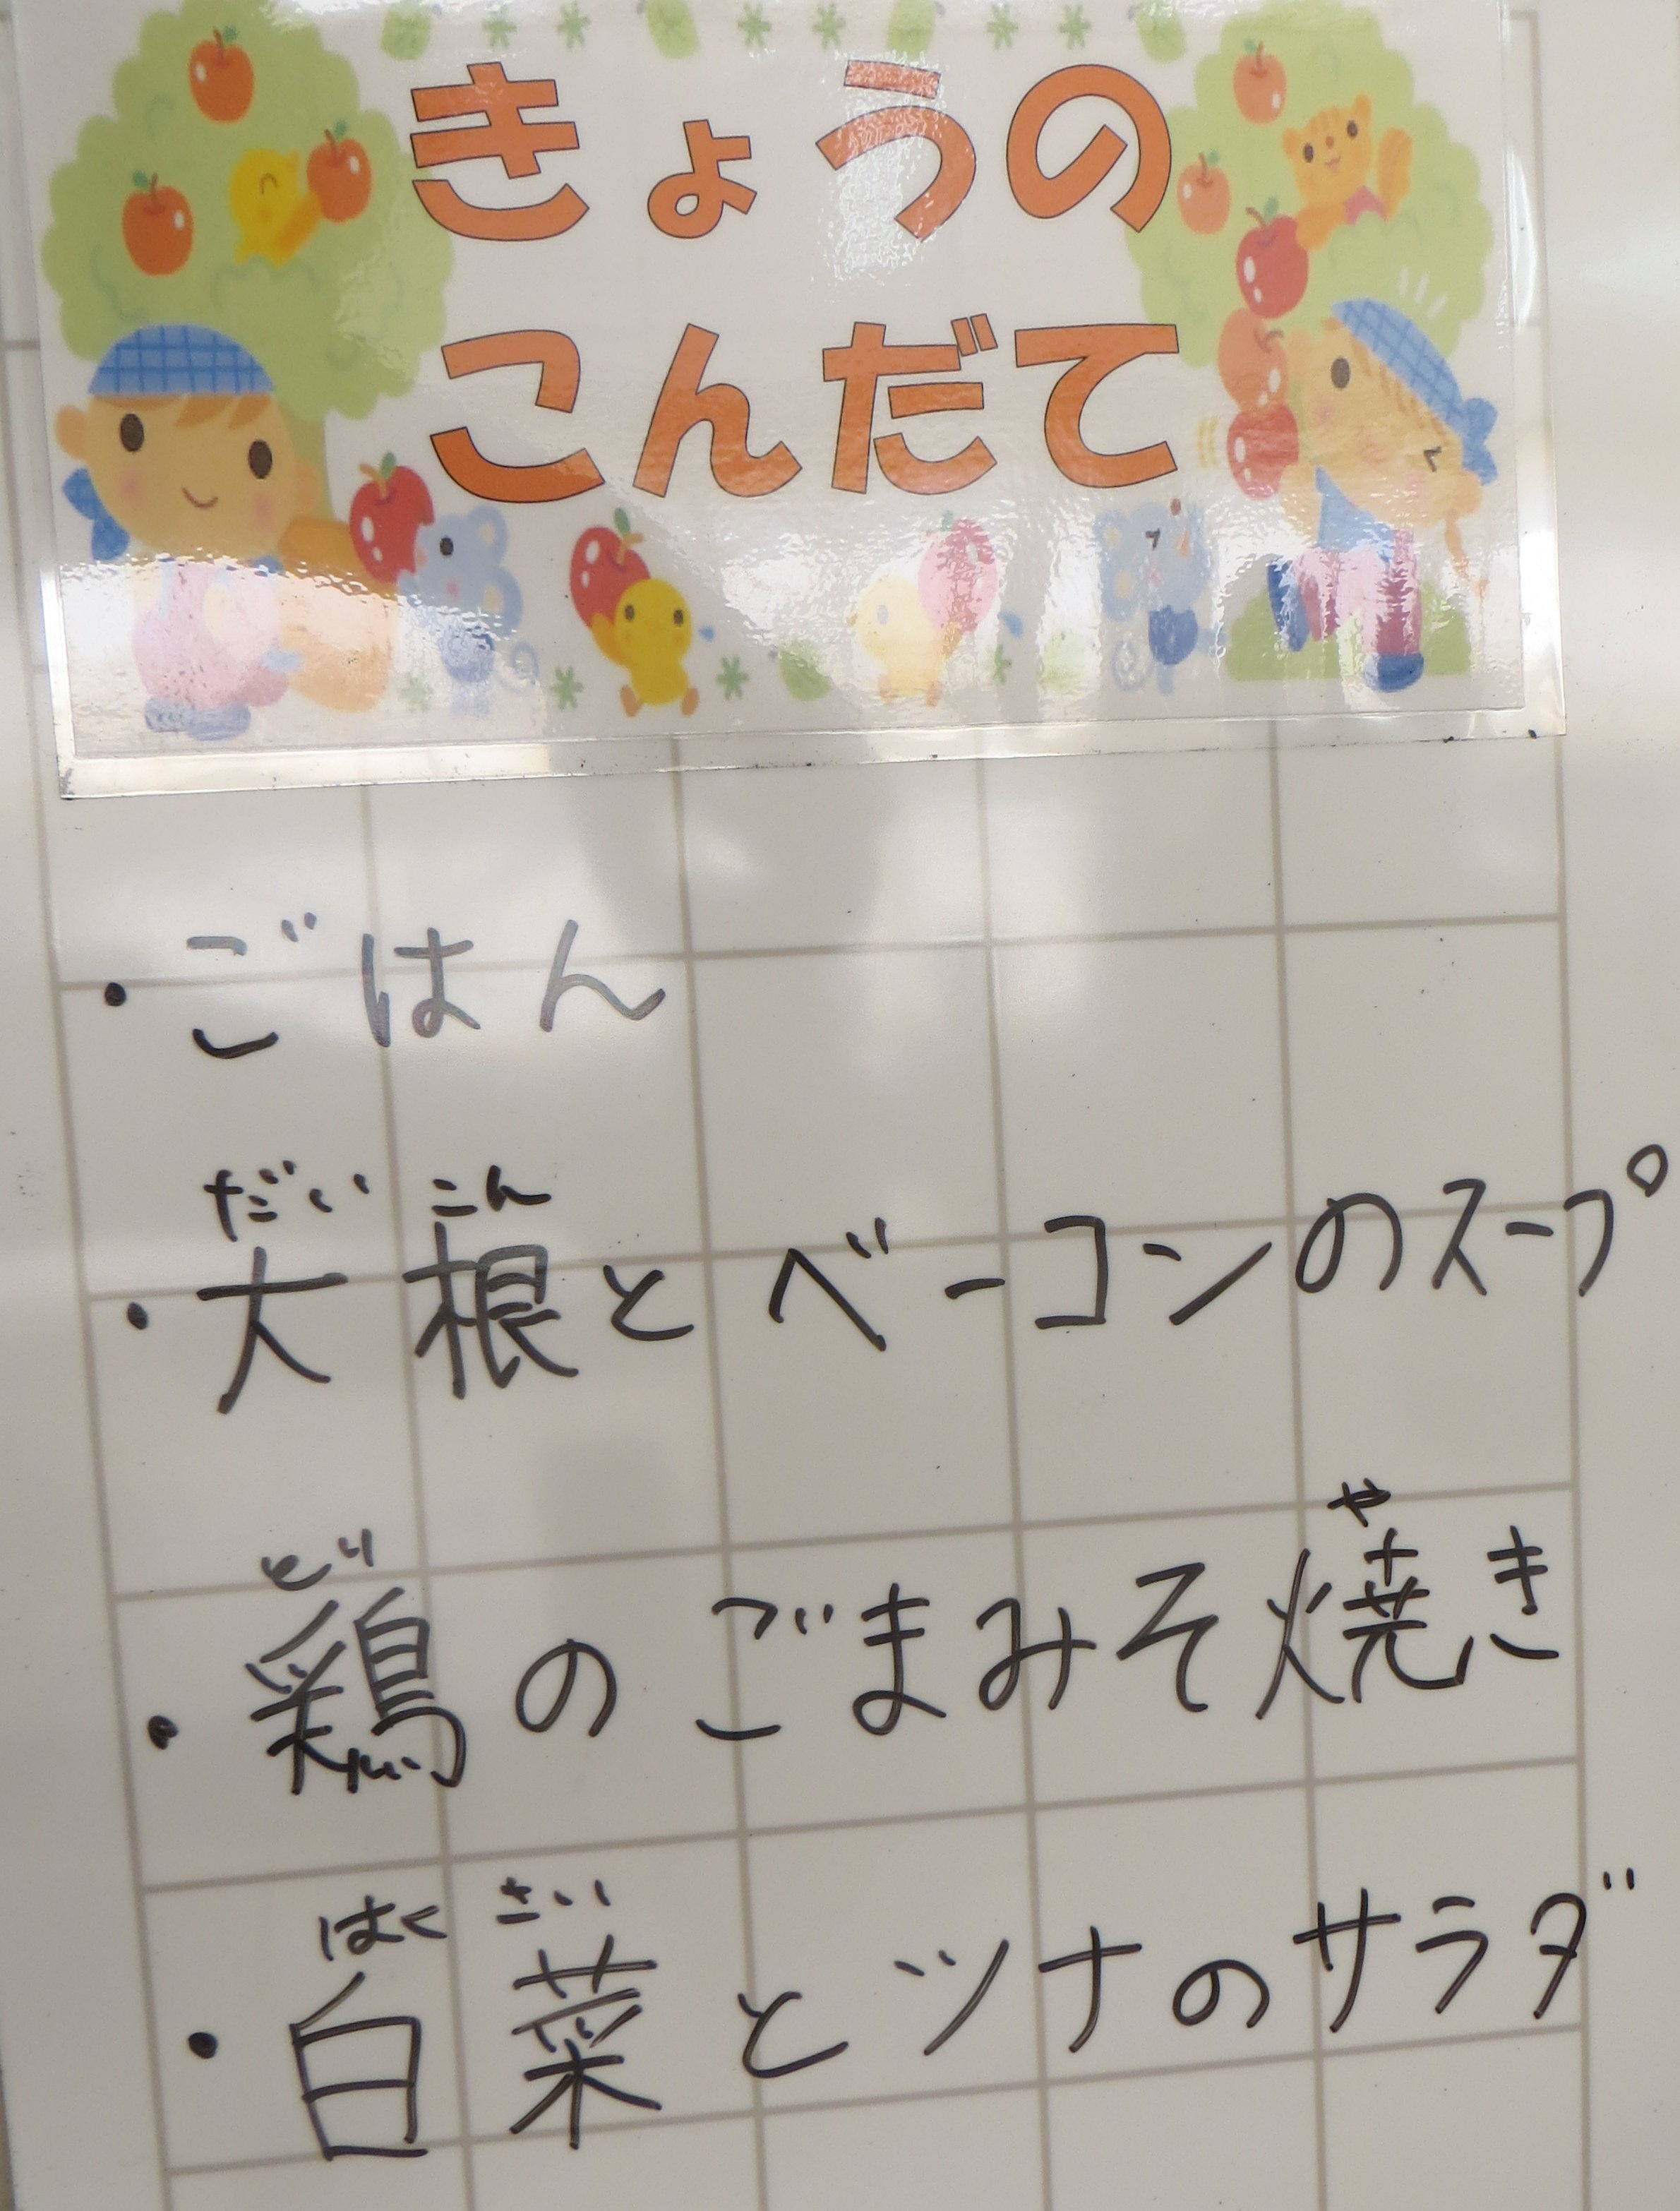 きょうの
こんだて
・ごはん
だいこん
・大根とベーコンのスープ
とり や
・鶏のごまみそ焼き
はくさい
・白菜とツナのサラダ